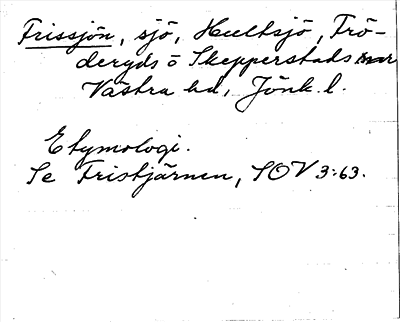 Frissjön, sjö, Hultsjö, Frö-
deryds o Skepperstads snr
Västra hd, Jönk. l.
Etymologi.
Se Fristjärnen, SOV 3:63.